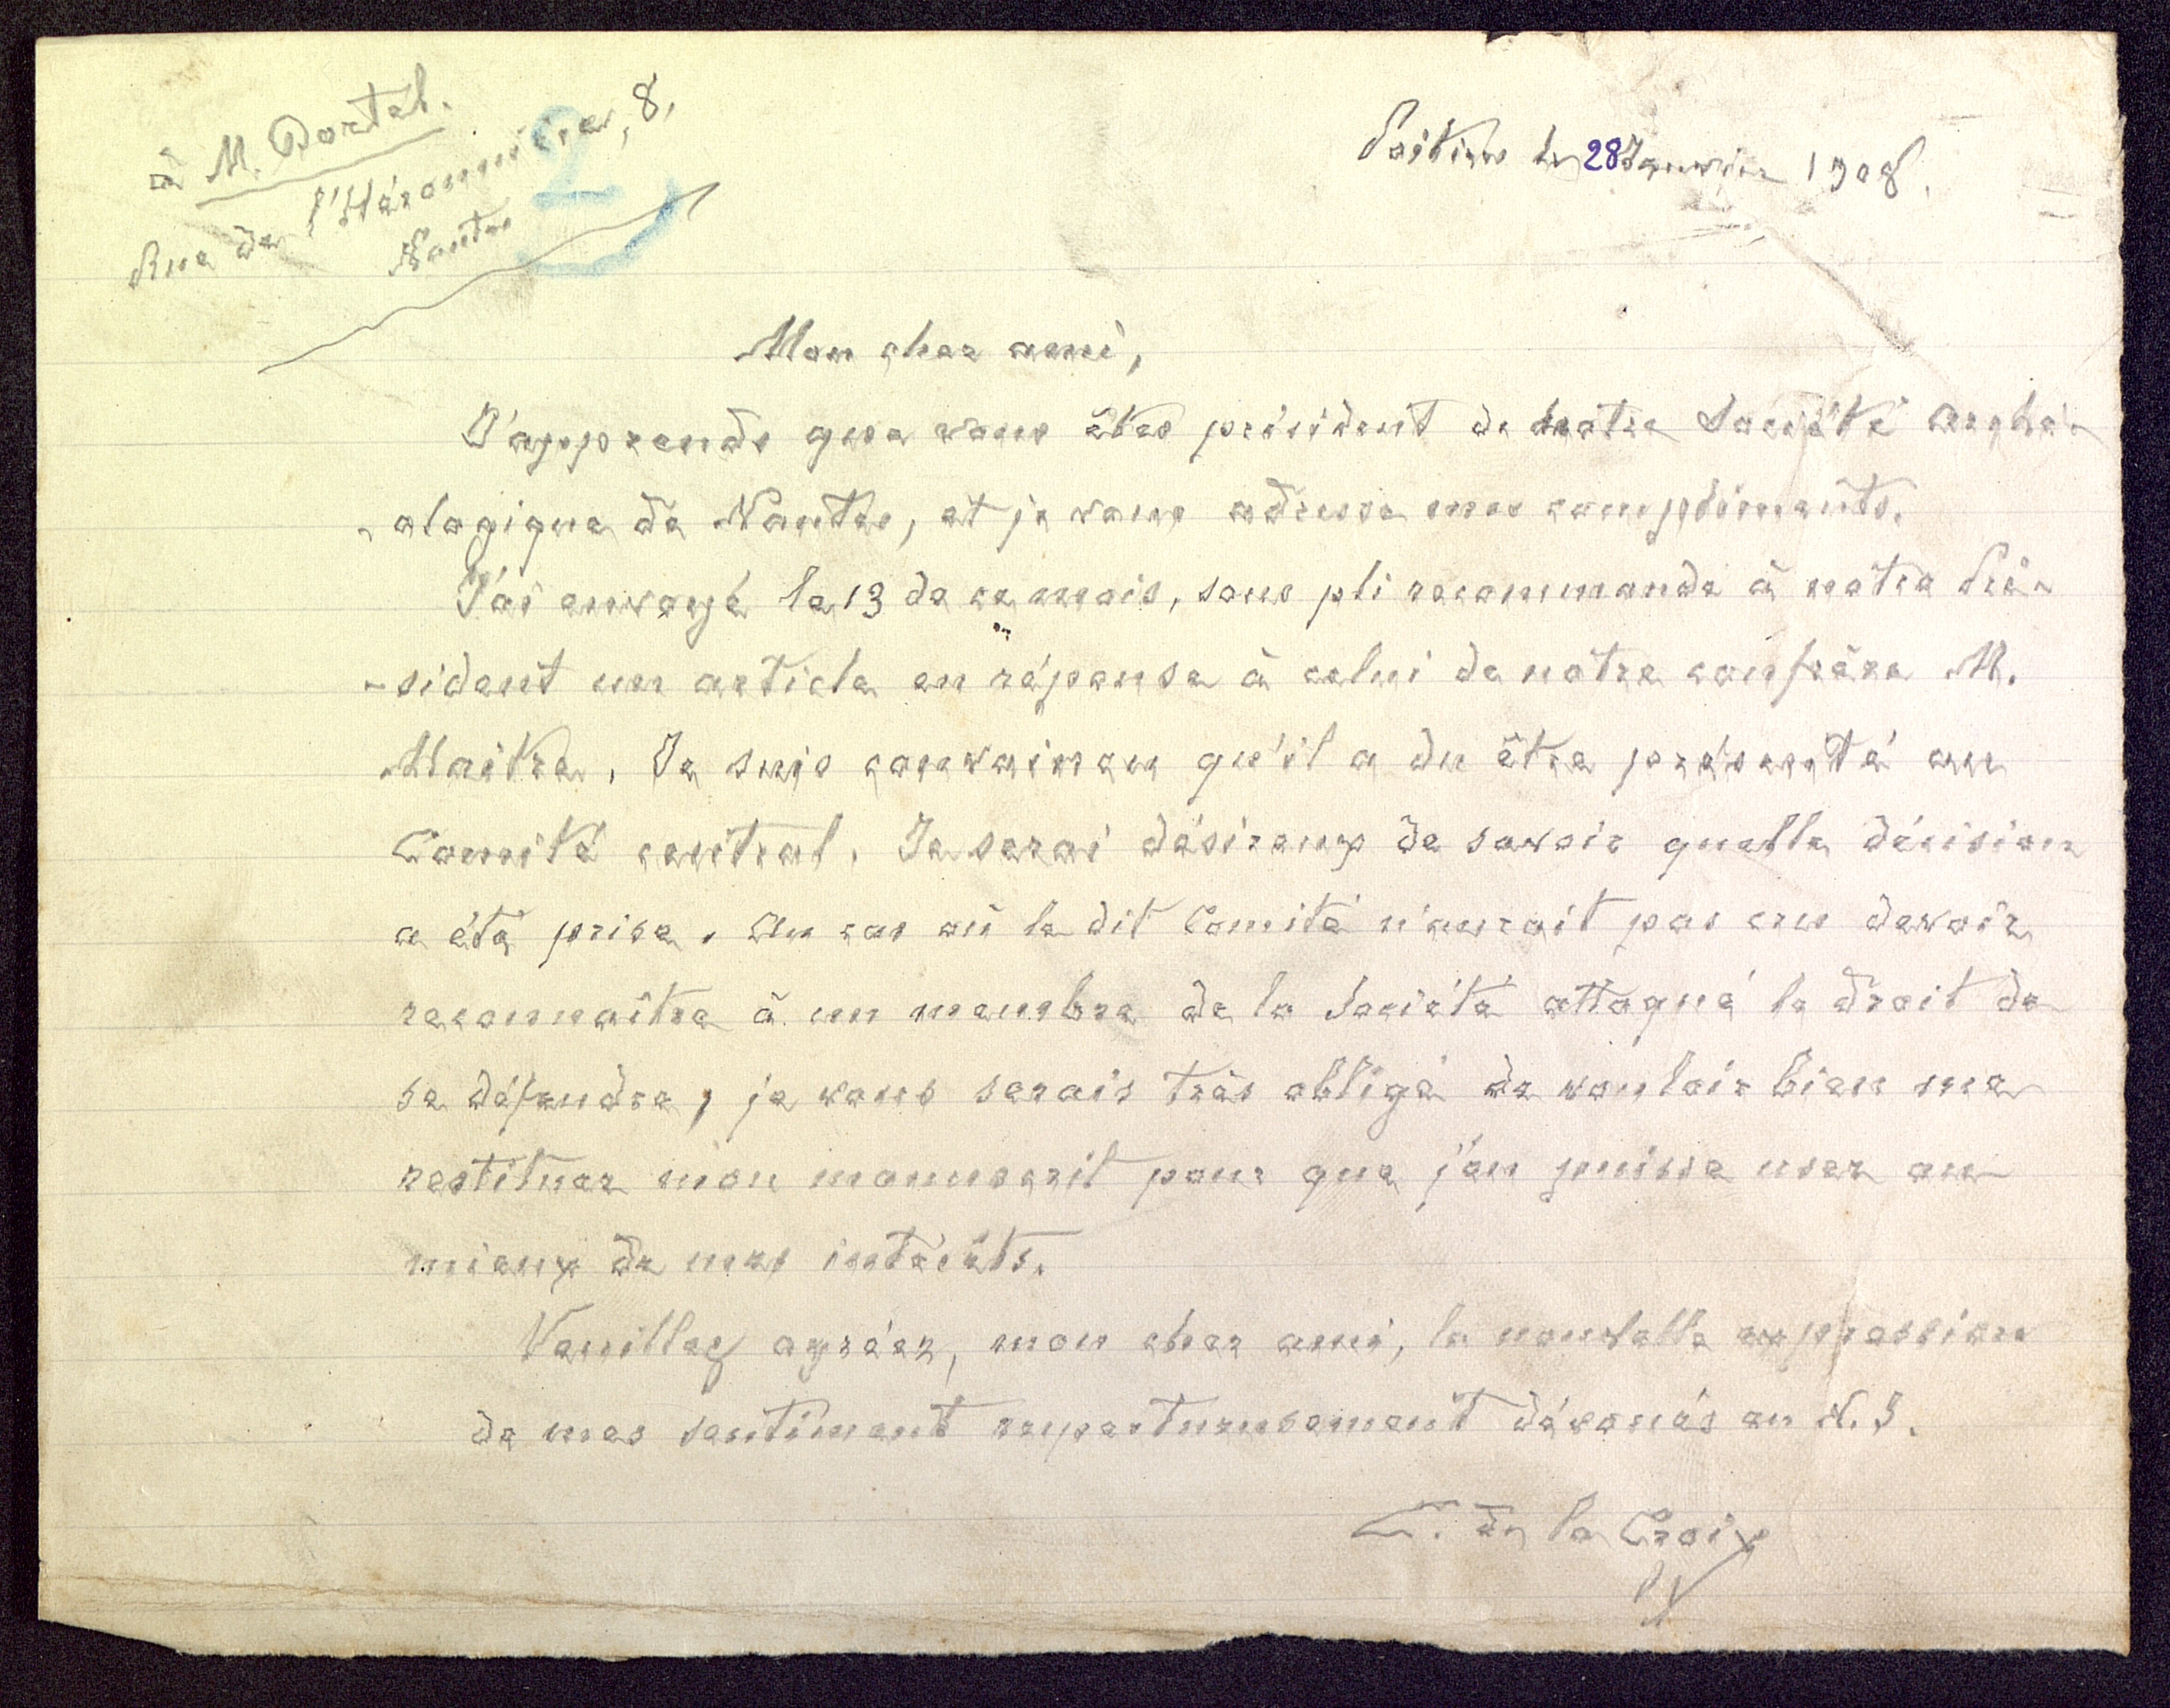 à M. Dortel.
Rue de l'Héronnière, 8,
Nantes
2
Poitiers le 28 Janvier 1908.
Mon cher ami,
J'apprends que vous êtes président de notre Société Arché-
-ologique de Nantes, et je vous adresse mes compliments.
J'ai envoyé le 13 de ce mois, sous pli recommandé à notre Pré-
-sident un article en réponse à celui de notre confrère M.
Maitre. Je suis convaincu qu'il a du être présenté au
Comité central. Je serai désireux de savoir quelle décision
a été prise. Au cas où le dit Comité n'aurait pas cru devoir
reconnaître à un membre de la Société attaqué le droit de
se défendre, je vous serais très obligé de vouloir bien me
restituer mon manuscrit pour que j'en puisse user au
mieux de mes intérêts.
Veuillez agréer, mon cher ami, la nouvelle expression
de mes sentiment respectueusement dévoués en N.S.
C. de la Croix